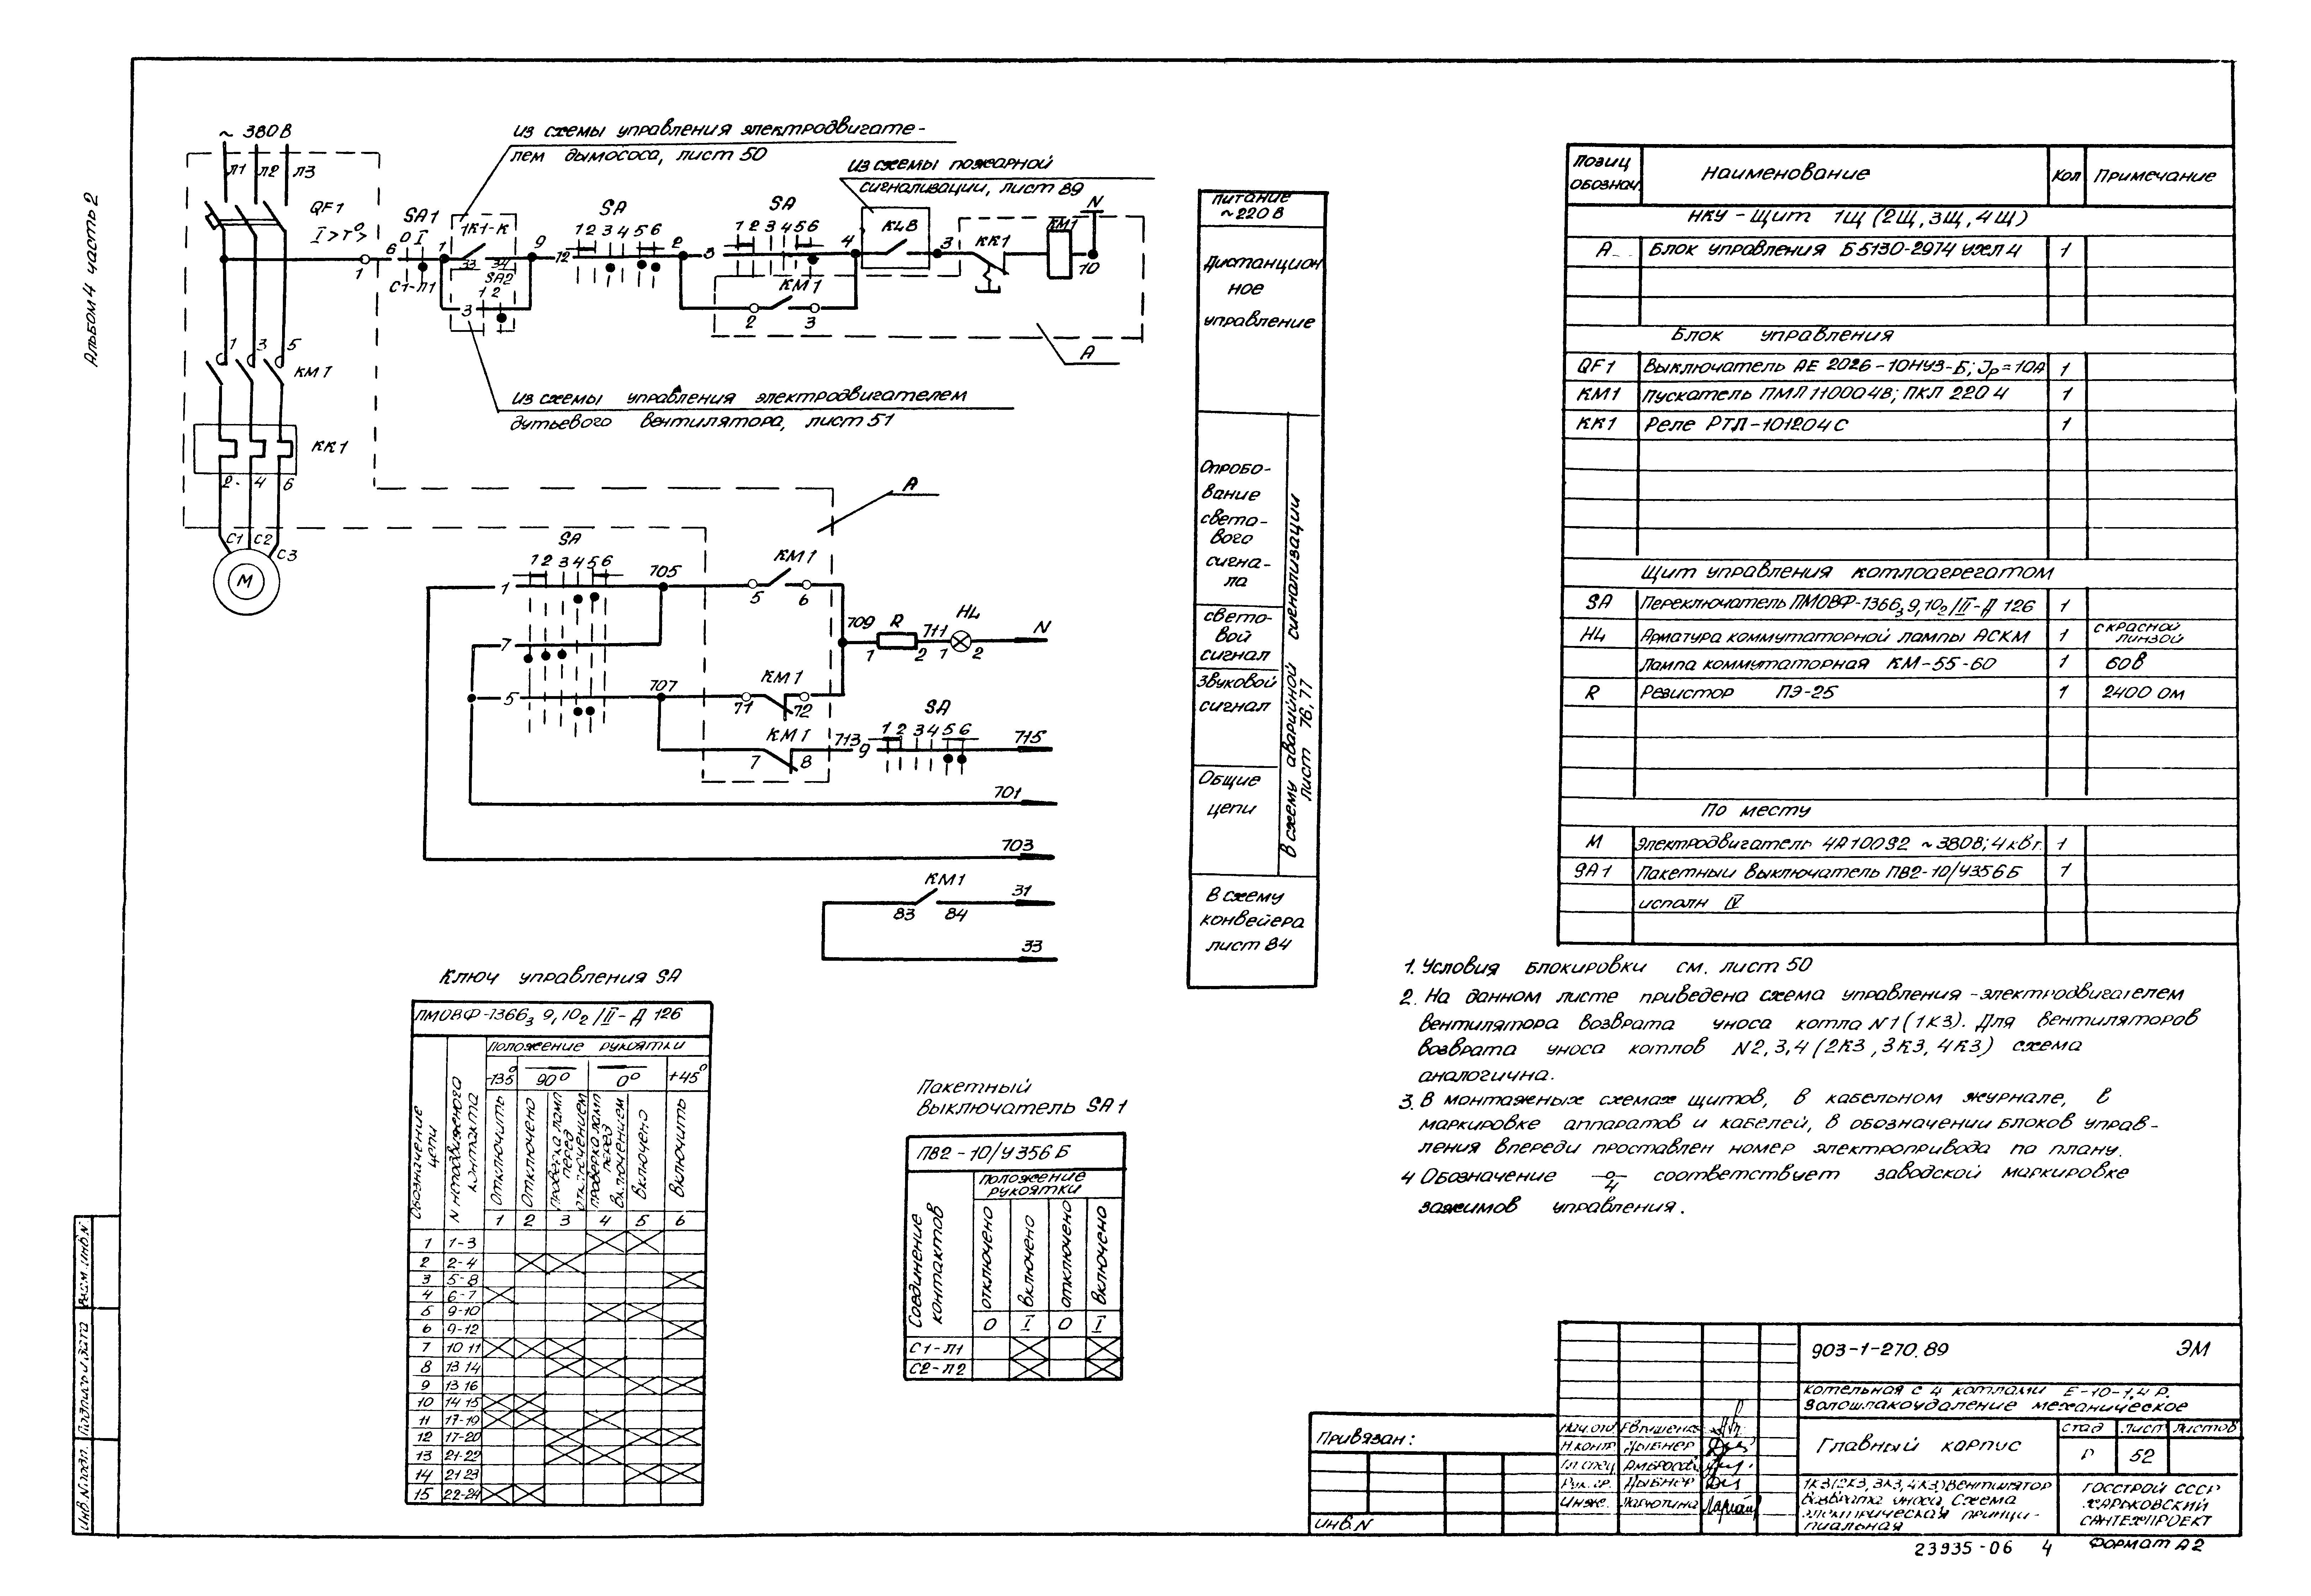 Альбом 4 часть 2
~ 380 В
Л1 Л2 Л3
QF1
I > r° >
из схемы управления электродвигате-
лем дымососа, лист 50
из схемы пожарной
сигнализации, лист 89
SA1
0 I
6
1
С1-Л1
1
1К1-К
33 34
SA2
1 2
3
9
SA
1 2 3 4 5 6
12
2
SA
1 2 3 4 5 6
3
4
KL8
3
КК1
КМ1
N
10
КМ1
2 3
А
1 3 5
КМ1
из схемы управления электродвигателем
дутьевого вентилятора, лист 51
КК1
2 4 6
С1 С2 С3
М
А
SA
1 2 3 4 5 6
1
705
КМ1
5 6
7
709 R 711 HL
1 2 1 2
N
5
707
КМ1
71 72
КМ1
7 8
713
9
SA
1 2 3 4 5 6
715
701
703
КМ1
83 84
31
33
Питание
~220 В
Дистанцион
ное
управление
Опробо-
вание
свето-
вого
сигна-
ла
свето-
вой
сигнал
Звуковой
сигнал
Общие
цепи
В схему аварийной сигнализации
лист 76,77
В схему
конвейера
лист 84
Позиц обознач. Наименование Кол Примечание
НКУ - Щит 1Щ (2Щ, 3Щ, 4Щ)
А Блок управления Б5130-2974 ухл 4 1
Блок управления
QF1 Выключатель АЕ 2026-10НУЗ-Б; Jр=10А 1
КМ1 Пускатель ПМЛ 110004В; ПКЛ 220 4 1
КК1 Реле РТЛ-101204С 1
Щит управления котлоагрегатом
SA Переключатель ПМОВФ-1366₃9,10₂/II-Д 126 1
HL Арматура коммутаторной лампы АСКМ 1 с красной линзой
Лампа коммутаторная КМ-55-60 1 60В
R Резистор ПЭ-25 1 2400 ом
По месту
М Электродвигатель 4А100S2 ~380В; 4 кВт. 1
SA1 Пакетный выключатель ПВ2-10/У356Б 1
исполн IV
1. Условия блокировки см. лист 50
2. На данном листе приведена схема управления -электродвигателем
вентилятора возврата уноса котла N1 (1К3). Для вентиляторов
возврата уноса котлов N2,3,4 (2К3, 3К3, 4К3) схема
аналогична.
3. В монтажных схемах щитов, в кабельном журнале, в
маркировке аппаратов и кабелей, в обозначении блоков управ-
ления впереди проставлен номер электропривода по плану.
4 Обозначение o/4 соответствует заводской маркировке
зажимов управления.
Ключ управления SA
ПМОВФ-1366₃ 9,10₂/II-Д 126
Обозначение цепи
N неподвижного контакта
Положение рукоятки
-135° 90° 0° +45°
Отключить
Отключено
проверка ламп перед отключением
проверка ламп перед включением
Включено
Включить
1 2 3 4 5 6
1 1-3
2 2-4
3 5-8
4 6-7
5 9-10
6 9-12
7 10 11
8 13 14
9 13 16
10 14 15
11 17-19
12 17-20
13 21-22
14 21 23
15 22-24
Пакетный
выключатель SA1
ПВ2-10/У356Б
Соединение контактов
Положение
рукоятки
отключено включено отключено включено
0 I 0 I
С1-Л1
С2-Л2
Привязан:
инв. N
903-1-270.89 ЭМ
Котельная с 4 котлами Е-10-1,4 Р.
Золошлакоудаление механическое
Главный корпус
стад лист листов
Р 52
1К3(2К3, 3К3, 4К3) Вентилятор
возврата уноса. Схема
электрическая принци-
пиальная
ГОССТРОЙ СССР
ХАРЬКОВСКИЙ
САНТЕХПРОЕКТ
Нач.отд
Н.контр Цыбнер
Гл.спец
Рук.гр. Цыбнер
Инж.
23935-06 4 Формат А2
Взам.инв.N
Подпись и дата
Инв.N подл.